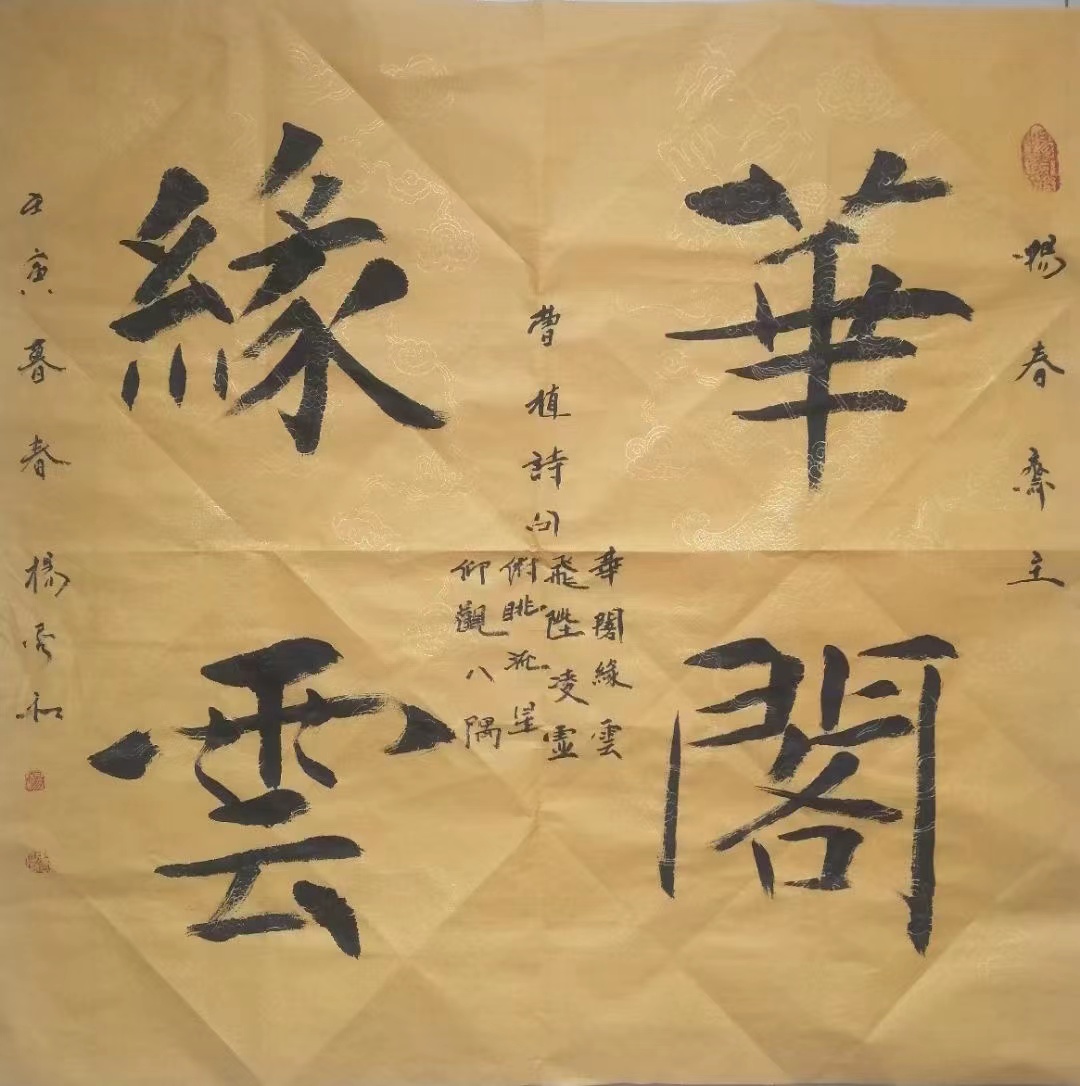 暢春齋主
華閣
緣雲
曹植詩句
華閣緣雲
飛陛凌虛
俯眺流星
仰觀八隅
壬寅暮春楊和